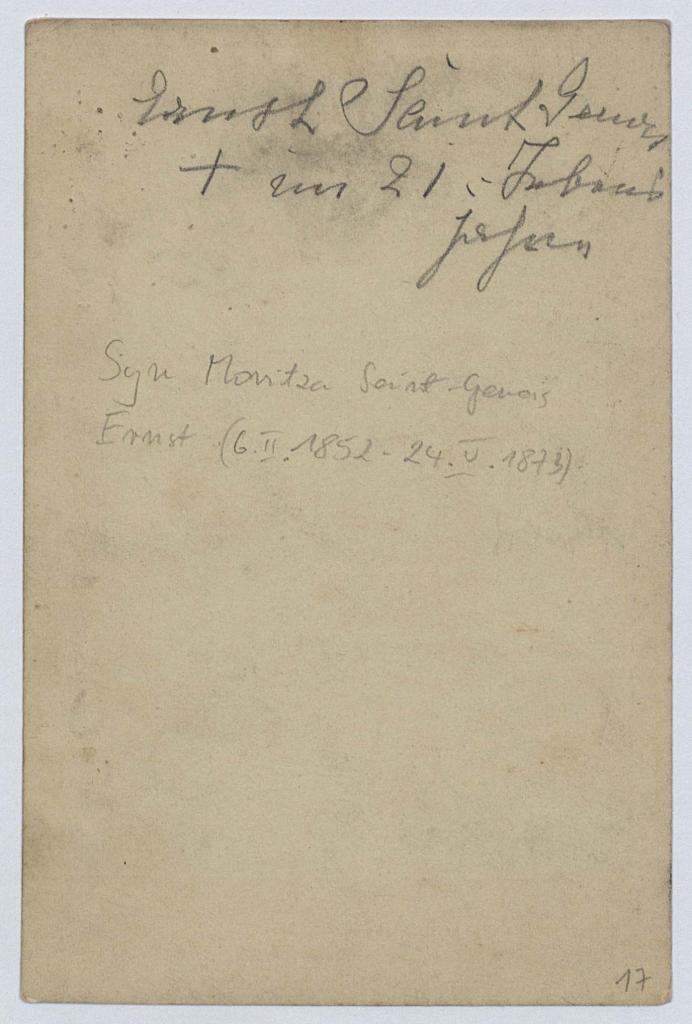 Ernst Saint Genois
+ im 21. Lebens
jahre
Syn Moritza Saint-Genois
Ernst (6.II.1852 - 24.V.1873).
17